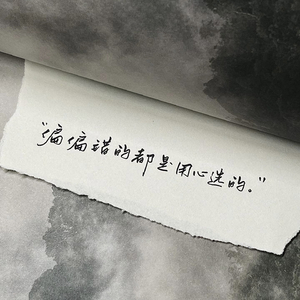 “偏偏错的都是用心选的。”